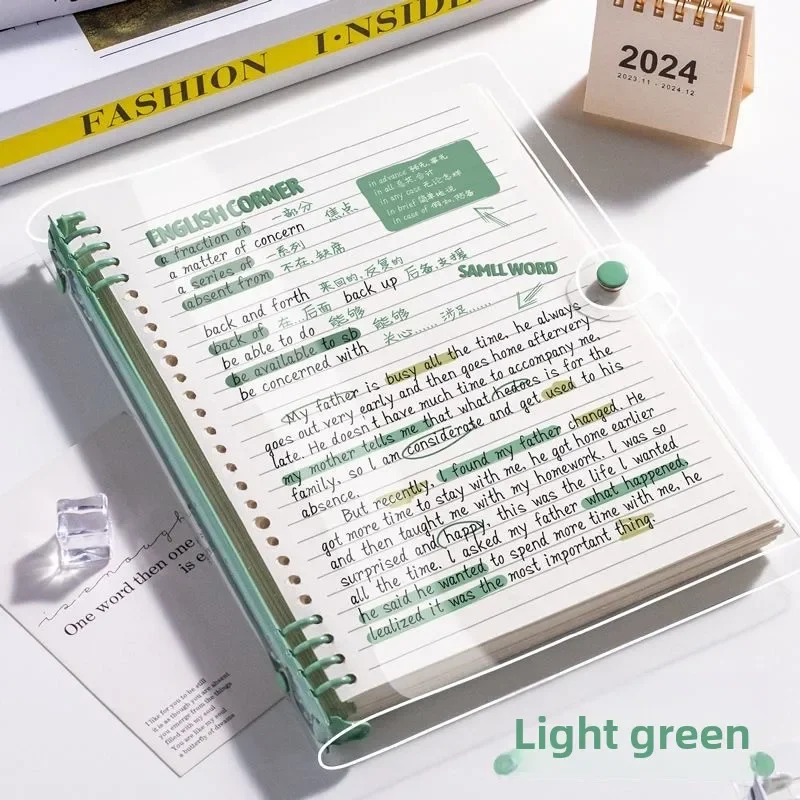 FASHION I·NSIDE
2024
2023.11 - 2024.12
ENGLISH CORNER
a fraction of 一部分
a matter of concern 焦点
a series of 一系列
absent from 不在,缺席
back and forth 来回的,反复的
back up 后备,支援
back of 在…后面
be able to do 能够
be available to sb 能够
be concerned with 关心…… 涉足……
in advance 预先,事先
in all 总共,合计
in any case 无论怎样
in brief 简单地说
in case of 假如,防备
SAMLL WORD
My father is busy all the time. he always
goes out very early and then goes home aftervery
late. He doesn't have much time to accompany me.
my mother tells me that what hedoes is for the
family, so I am considerate and get used to his
absence.
But recently, I found my father changed. He
got more time to stay with me. he got home earlier
and then taught me with my homework. I was so
surprised and happy, this was the life I wanted
all the time. I asked my father what happened
he said he wanted to spend more time with me, he
lealized it was the most important thing.
is enough
One word then one
is e
I like for you to be still
it is as though you are absent
you emerge from the things
filled with my soul
You are like my soul
a butterfly of dreams
Light green